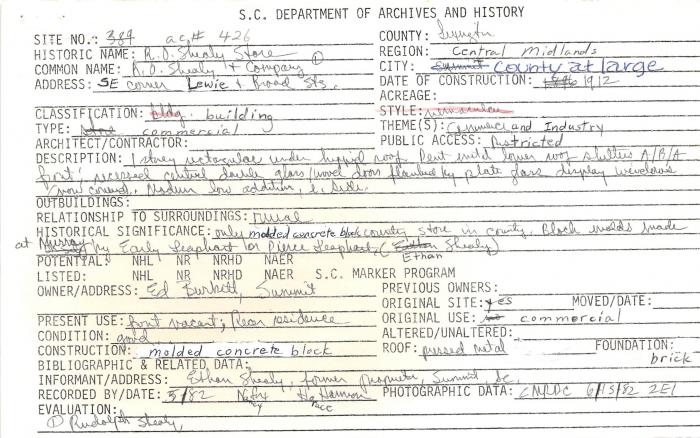 S.C. DEPARTMENT OF ARCHIVES AND HISTORY
SITE NO.: 384 ac.# 426
COUNTY: Lexington
HISTORIC NAME: R.O. Shealy Store
REGION: Central Midlands
COMMON NAME: R.O. Shealy + Company ①
CITY: Summit County at large
ADDRESS: SE corner Lewie + Broad Sts.
DATE OF CONSTRUCTION: 1912
ACREAGE:
CLASSIFICATION: bldg. building
STYLE: vernacular
TYPE: store commercial
THEME(S): Commerce and Industry
ARCHITECT/CONTRACTOR:
PUBLIC ACCESS: Restricted
DESCRIPTION: 1 story rectangular under hipped roof. Pent lower roof shelters A/B/A
front; recessed central double glass/wood doors flanked by plate glass display windows
(now covered). Modern low addition, side.
OUTBUILDINGS:
RELATIONSHIP TO SURROUNDINGS: rural
HISTORICAL SIGNIFICANCE: only molded concrete block country store in county. Block molds made
at Murray by Early Leaphart or Pierce Leaphart. (Ethan Shealy)
Ethan
POTENTIAL: NHL NR NRHD NAER
LISTED: NHL NR NRHD NAER S.C. MARKER PROGRAM
OWNER/ADDRESS: Ed Burkett, Summit
PREVIOUS OWNERS:
ORIGINAL SITE: yes MOVED/DATE:
PRESENT USE: front vacant; Rear residence
ORIGINAL USE: commercial
CONDITION: good
ALTERED/UNALTERED:
CONSTRUCTION: molded concrete block
ROOF: pressed metal FOUNDATION: brick
BIBLIOGRAPHIC & RELATED DATA:
INFORMANT/ADDRESS: Ethan Shealy, former proprietor, Summit, SC
RECORDED BY/DATE: 3/82 Nancy Harmon
PHOTOGRAPHIC DATA: CMRPC 6/15/82 2E1
EVALUATION:
① Rudolph Shealy